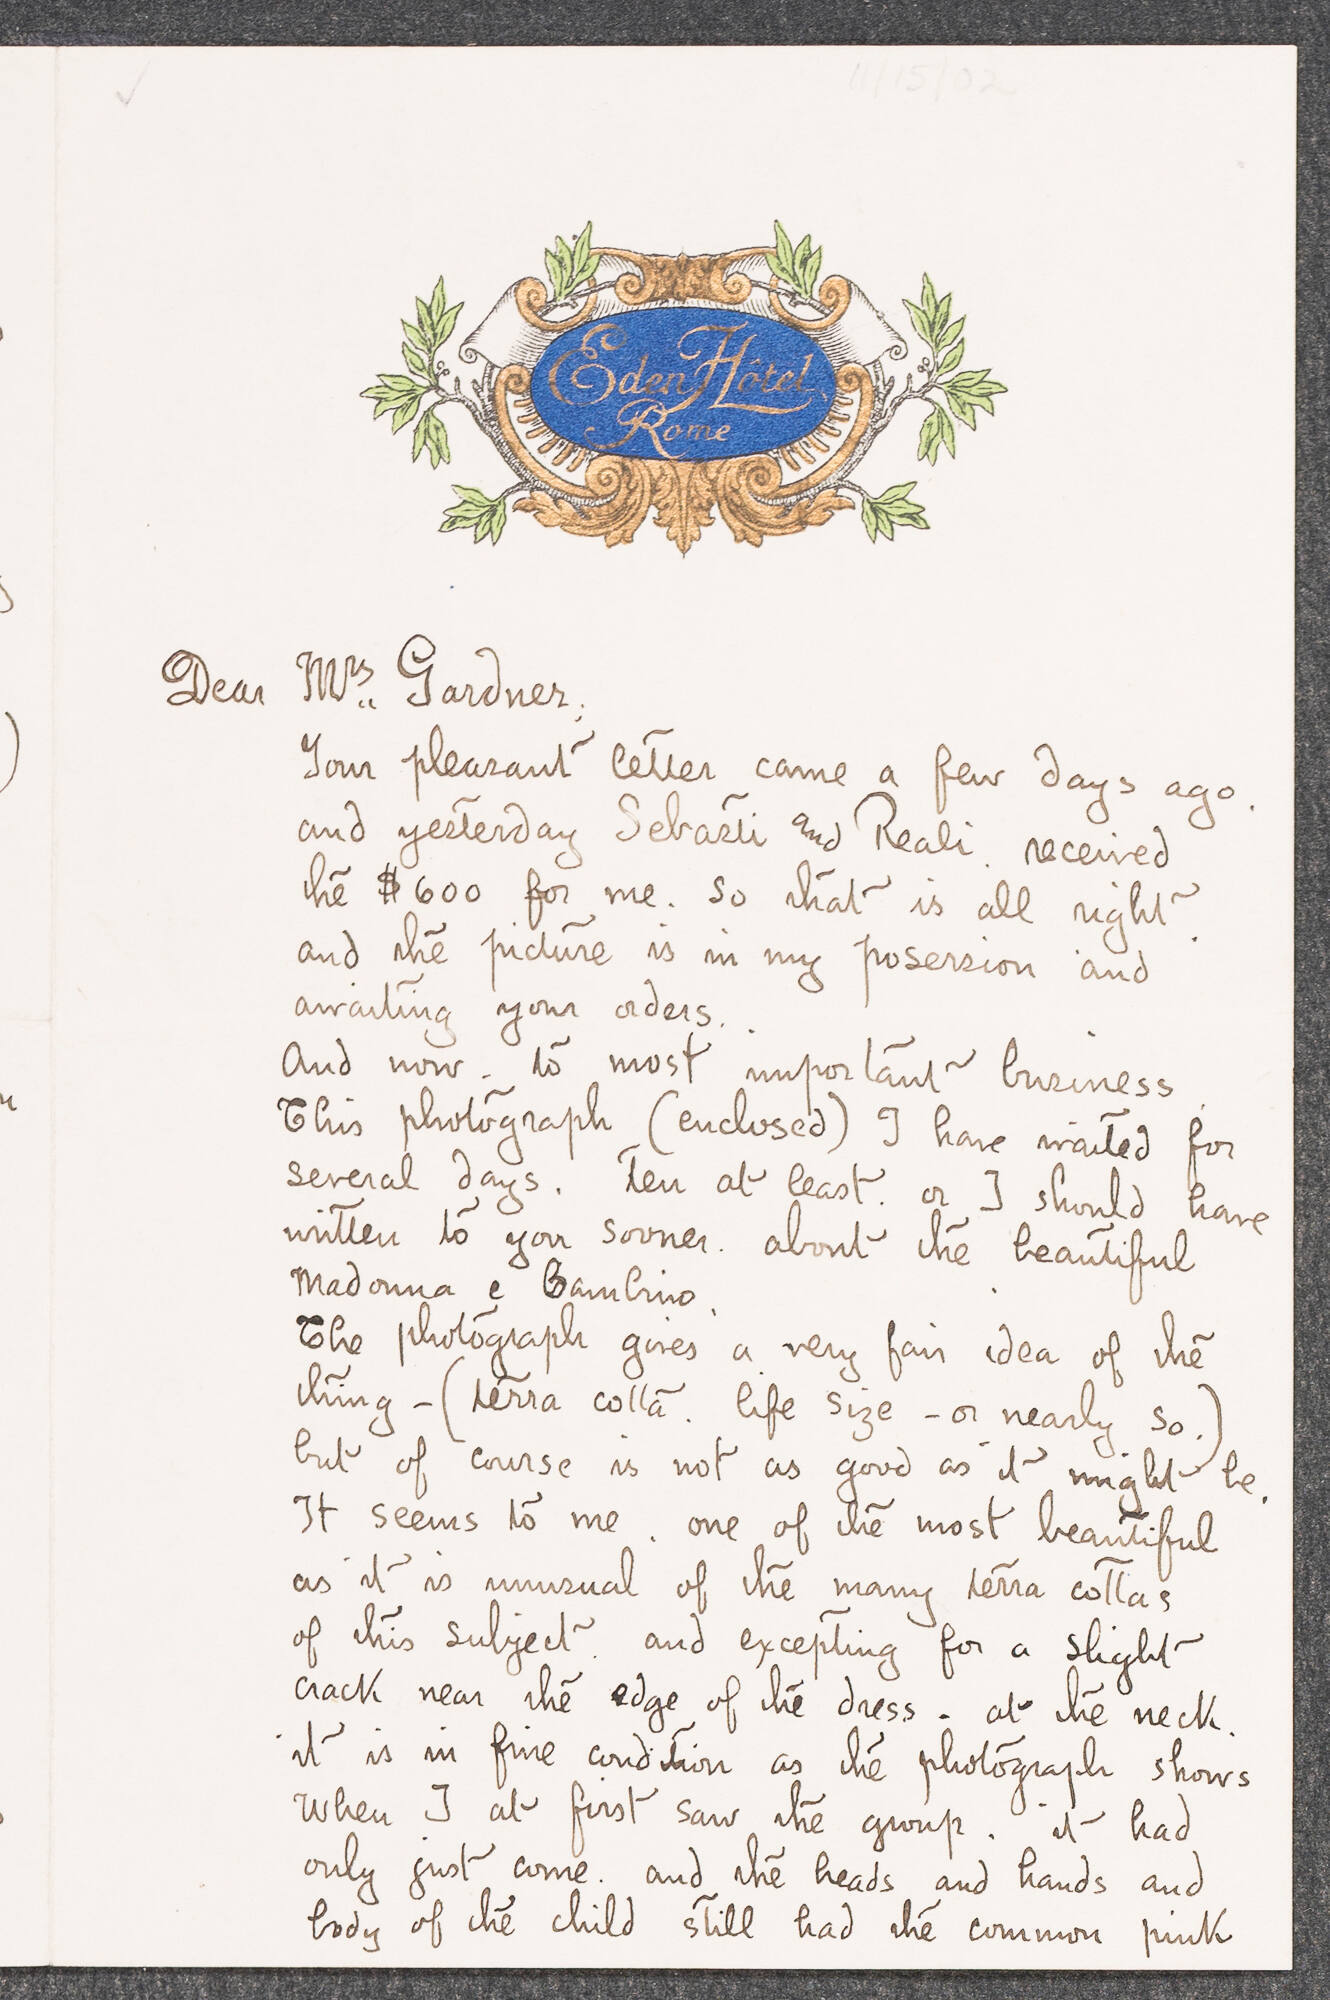 11/15/02
Eden Hôtel
Rome
Dear Mrs. Gardner,
Your pleasant letter came a few days ago.
and yesterday Sebasti and Reali. received
the $600 for me. So that is all right.
and the picture is in my posession and
awaiting your orders.
And now. to most important business.
This photograph (enclosed) I have waited for
several days. ten at least. or I should have
written to you sooner. about the beautiful
Madonna e Bambino.
The photograph gives a very fair idea of the
thing - (terra cotta. life size - or nearly so.)
but of course is not as good as it might be.
It seems to me. one of the most beautiful
as it is unusual of the many terra cottas
of this subject. and excepting for a slight
crack near the edge of the dress. at the neck.
it is in fine condition as the photograph shows
When I at first saw the group. it had
only just come. and the heads and hands and
body of the child still had the common pink